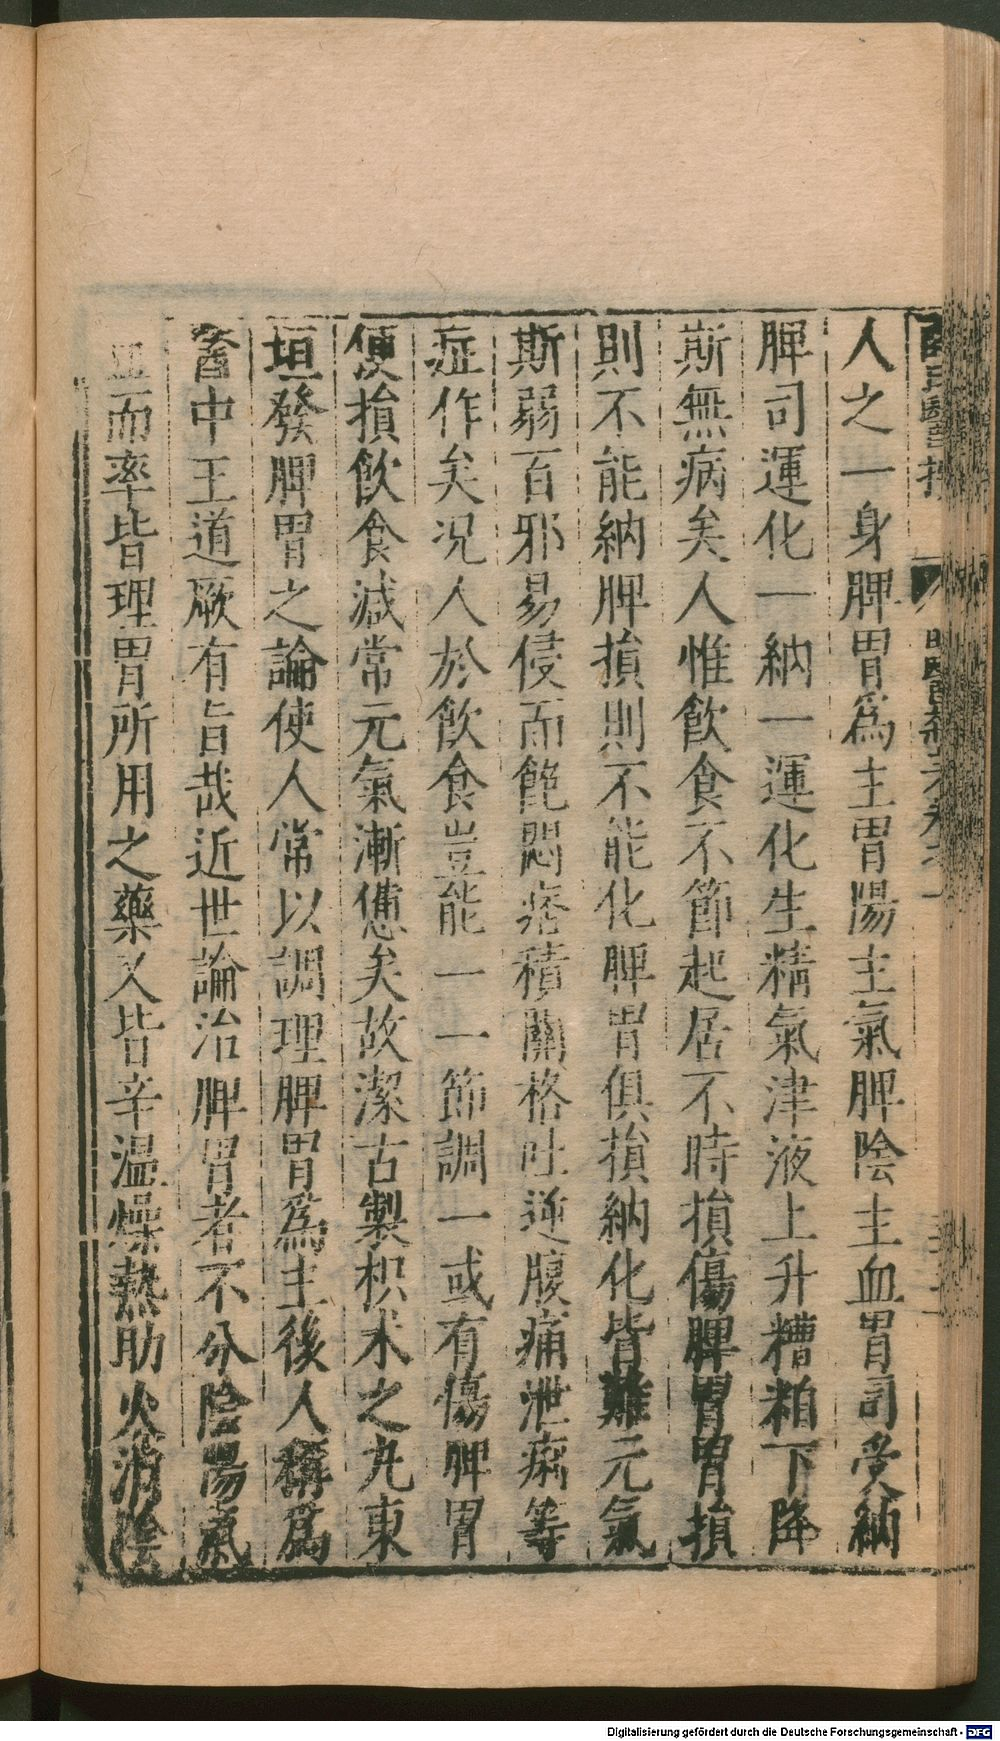 人之一身脾胃爲主胃陽主氣脾陰主血胃司受納
脾司運化一納一運化生精氣津液上升糟粕下降
斯無病矣人惟飲食不節起居不時損傷脾胃胃損
則不能納脾損則不能化脾胃俱損納化皆難元氣
斯弱百邪易侵而飽悶痞積關格吐逆腹痛泄痢等
症作矣况人於飲食豈能一一節調一或有傷脾胃
便損飲食減常元氣漸憊矣故潔古製枳朮之丸東
垣發脾胃之論使人常以調理脾胃爲主後人稱爲
醫中王道厥有旨哉近世論治脾胃者不分陰陽氣
血而率皆理胃所用之藥又皆辛温燥熱助火消陰
Digitalisierung gefördert durch die Deutsche Forschungsgemeinschaft - DFG